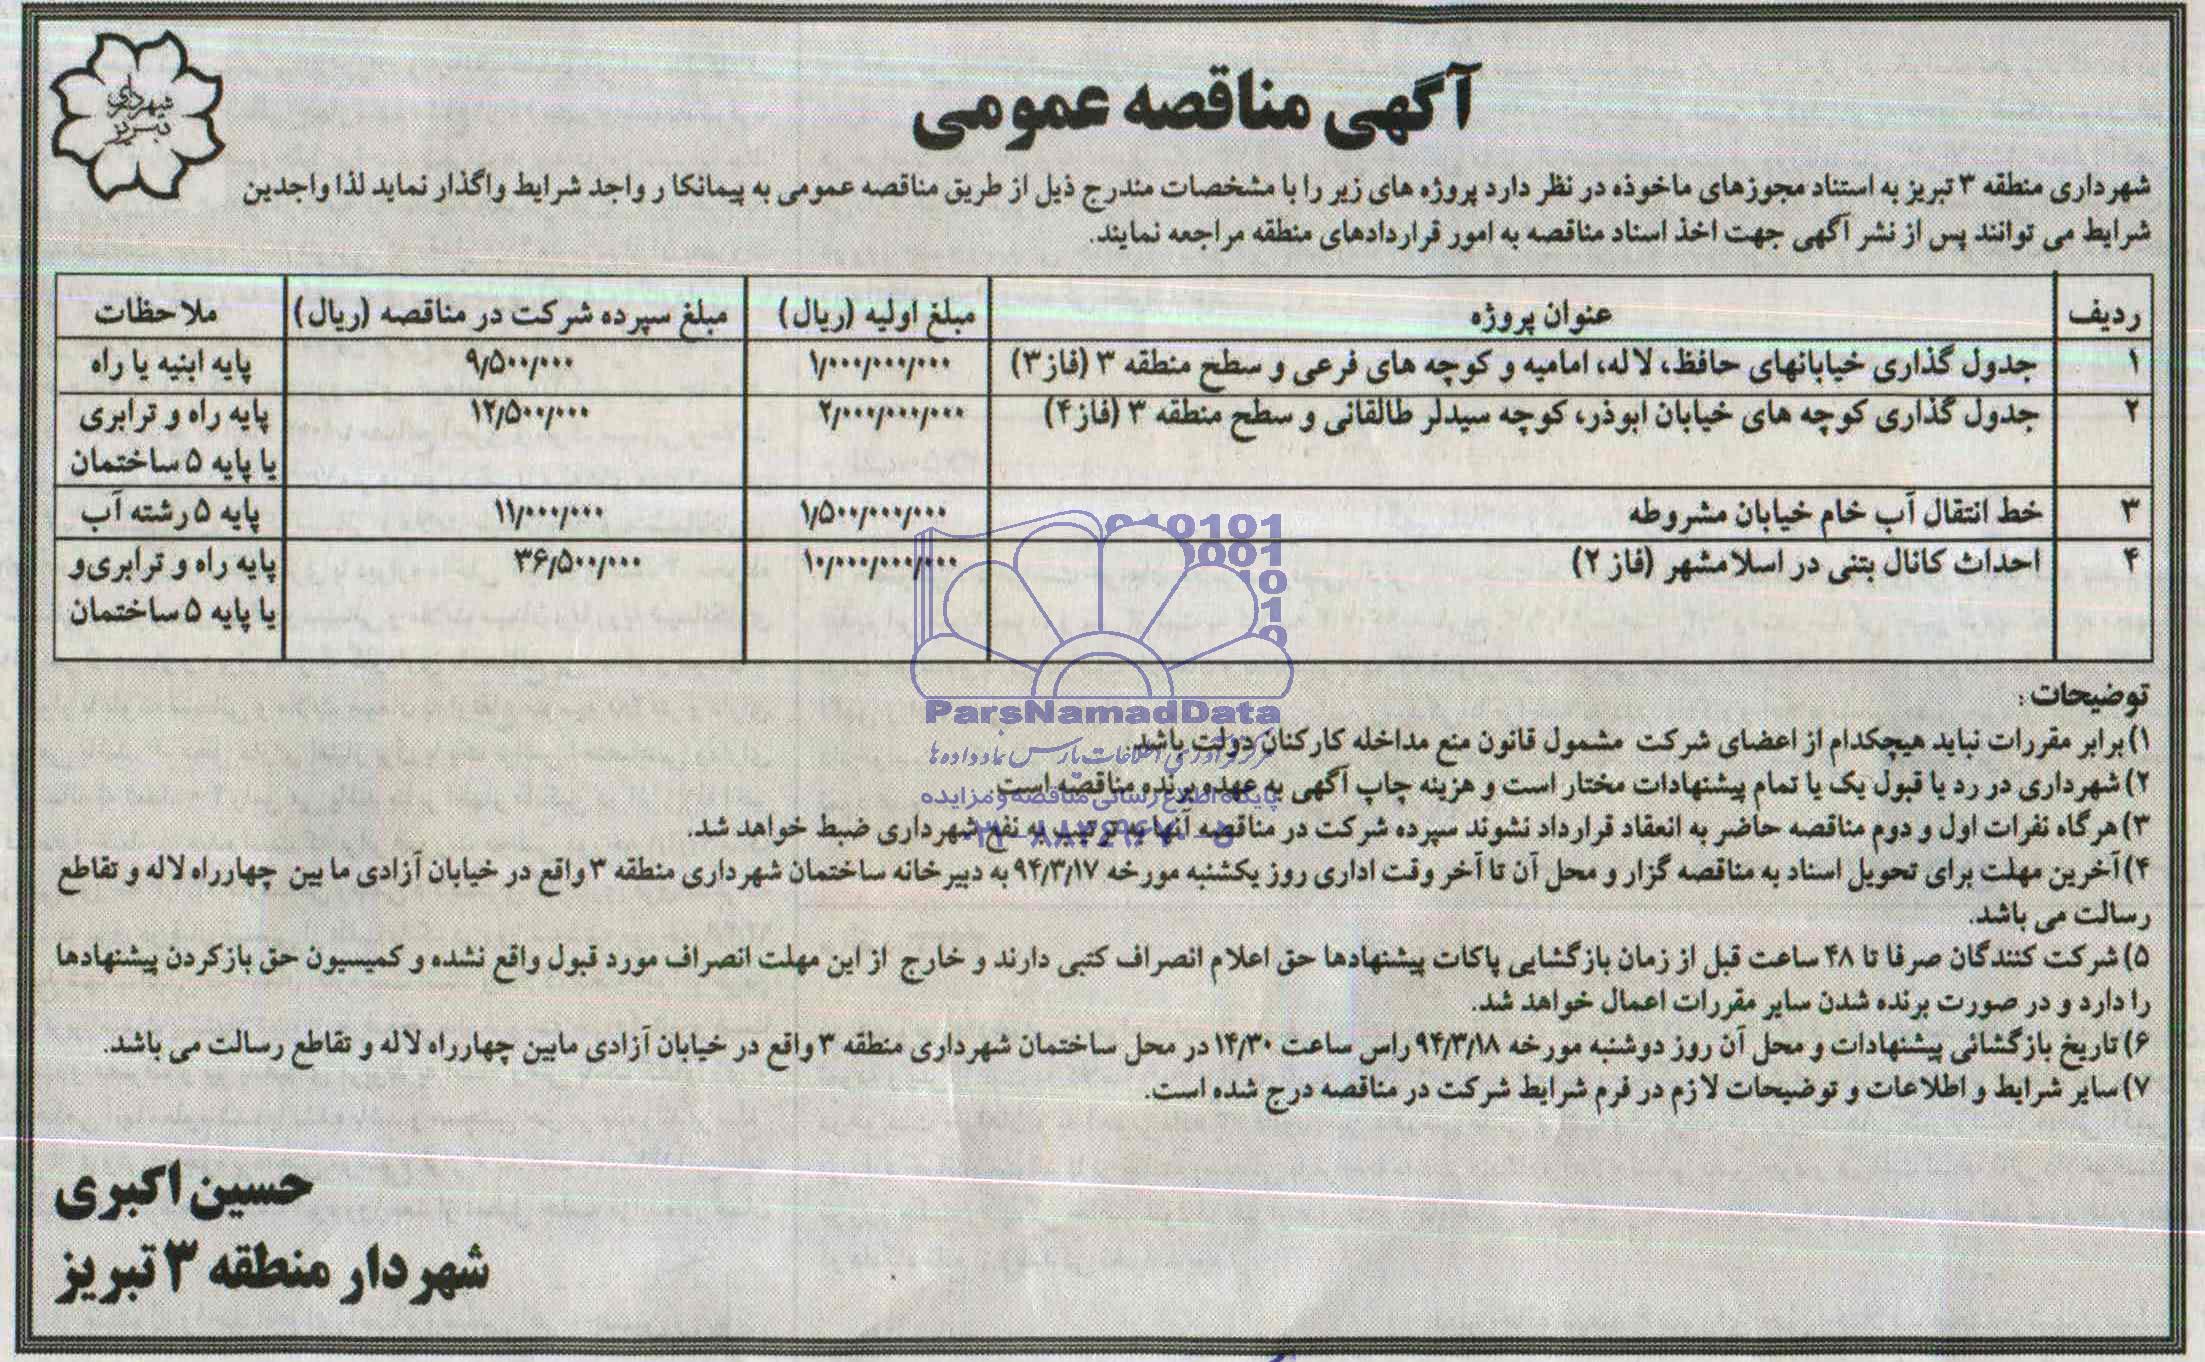 شهرداری
تبریز
آگهی مناقصه عمومی
شهرداری منطقه ۳ تبریز به استناد مجوزهای ماخوذه در نظر دارد پروژه های زیر را با مشخصات مندرج ذیل از طریق مناقصه عمومی به پیمانکا ر واجد شرایط واگذار نماید لذا واجدین
شرایط می توانند پس از نشر آگهی جهت اخذ اسناد مناقصه به امور قراردادهای منطقه مراجعه نمایند.
ردیف عنوان پروژه مبلغ اولیه (ریال) مبلغ سپرده شرکت در مناقصه (ریال) ملاحظات
۱ جدول گذاری خیابانهای حافظ، لاله، امامیه و کوچه های فرعی و سطح منطقه ۳ (فاز۳) ۱/۰۰۰/۰۰۰/۰۰۰ ۹/۵۰۰/۰۰۰ پایه ابنیه یا راه
۲ جدول گذاری کوچه های خیابان ابوذر، کوچه سیدلر طالقانی و سطح منطقه ۳ (فاز۴) ۲/۰۰۰/۰۰۰/۰۰۰ ۱۲/۵۰۰/۰۰۰ پایه راه و ترابری
یا پایه ۵ ساختمان
۳ خط انتقال آب خام خیابان مشروطه ۱/۵۰۰/۰۰۰/۰۰۰ ۱۱/۰۰۰/۰۰۰ پایه ۵ رشته آب
۴ احداث کانال بتنی در اسلامشهر (فاز ۲) ۱۰/۰۰۰/۰۰۰/۰۰۰ ۳۶/۵۰۰/۰۰۰ پایه راه و ترابری و
یا پایه ۵ ساختمان
توضیحات:
۱) برابر مقررات نباید هیچکدام از اعضای شرکت مشمول قانون منع مداخله کارکنان دولت باشد.
۲) شهرداری در رد یا قبول یک یا تمام پیشنهادات مختار است و هزینه چاپ آگهی به عهده برنده مناقصه است.
۳) هرگاه نفرات اول و دوم مناقصه حاضر به انعقاد قرارداد نشوند سپرده شرکت در مناقصه آنها به ترتیب به نفع شهرداری ضبط خواهد شد.
۴) آخرین مهلت برای تحویل اسناد به مناقصه گزار و محل آن تا آخر وقت اداری روز یکشنبه مورخه ۹۴/۳/۱۷ به دبیرخانه ساختمان شهرداری منطقه ۳ واقع در خیابان آزادی ما بین چهارراه لاله و تقاطع
رسالت می باشد.
۵) شرکت کنندگان صرفا تا ۴۸ ساعت قبل از زمان بازگشایی پاکات پیشنهادها حق اعلام انصراف کتبی دارند و خارج از این مهلت انصراف مورد قبول واقع نشده و کمیسیون حق بازکردن پیشنهادها
را دارد و در صورت برنده شدن سایر مقررات اعمال خواهد شد.
۶) تاریخ بازگشائی پیشنهادات و محل آن روز دوشنبه مورخه ۹۴/۳/۱۸ راس ساعت ۱۴/۳۰ در محل ساختمان شهرداری منطقه ۳ واقع در خیابان آزادی مابین چهارراه لاله و تقاطع رسالت می باشد.
۷) سایر شرایط و اطلاعات و توضیحات لازم در فرم شرایط شرکت در مناقصه درج شده است.
حسین اکبری
شهردار منطقه ۳ تبریز
ParsNamadData
مرکز فرآوری اطلاعات پارس نماد داده ها
پایگاه اطلاع رسانی مناقصه و مزایده